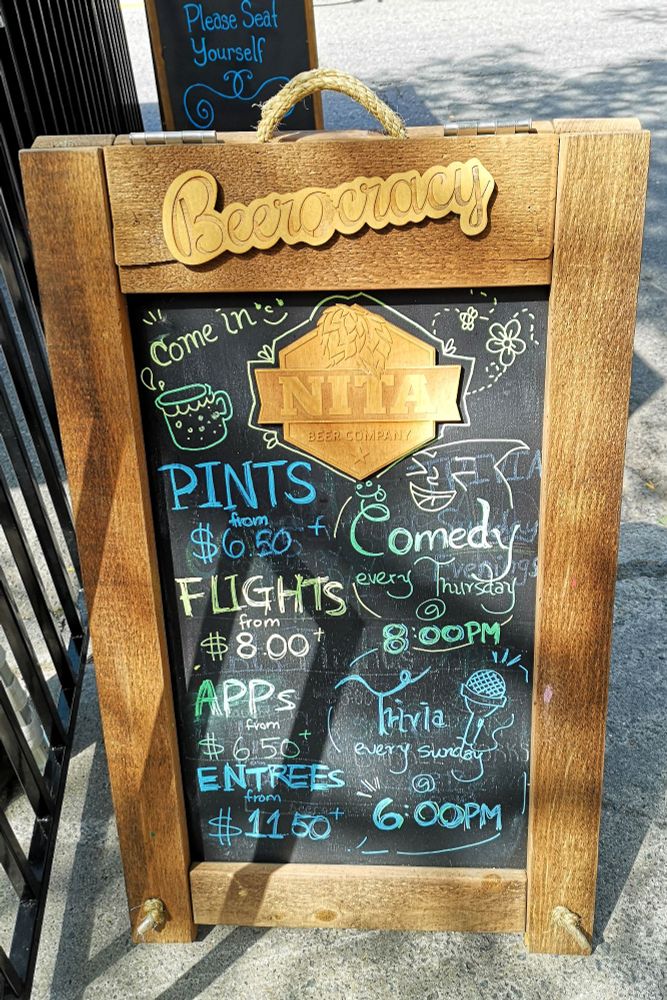 Please Seat
Yourself
Beerocracy
Come in
NITA
BEER COMPANY
PINTS
from
$6.50+
FLIGHTS
from
$8.00+
APPs
from
$6.50+
ENTREEs
from
$11.50+
TRIVIA
Comedy
every Thursday
@
8:00PM
Trivia
every sunday
@
6:00PM